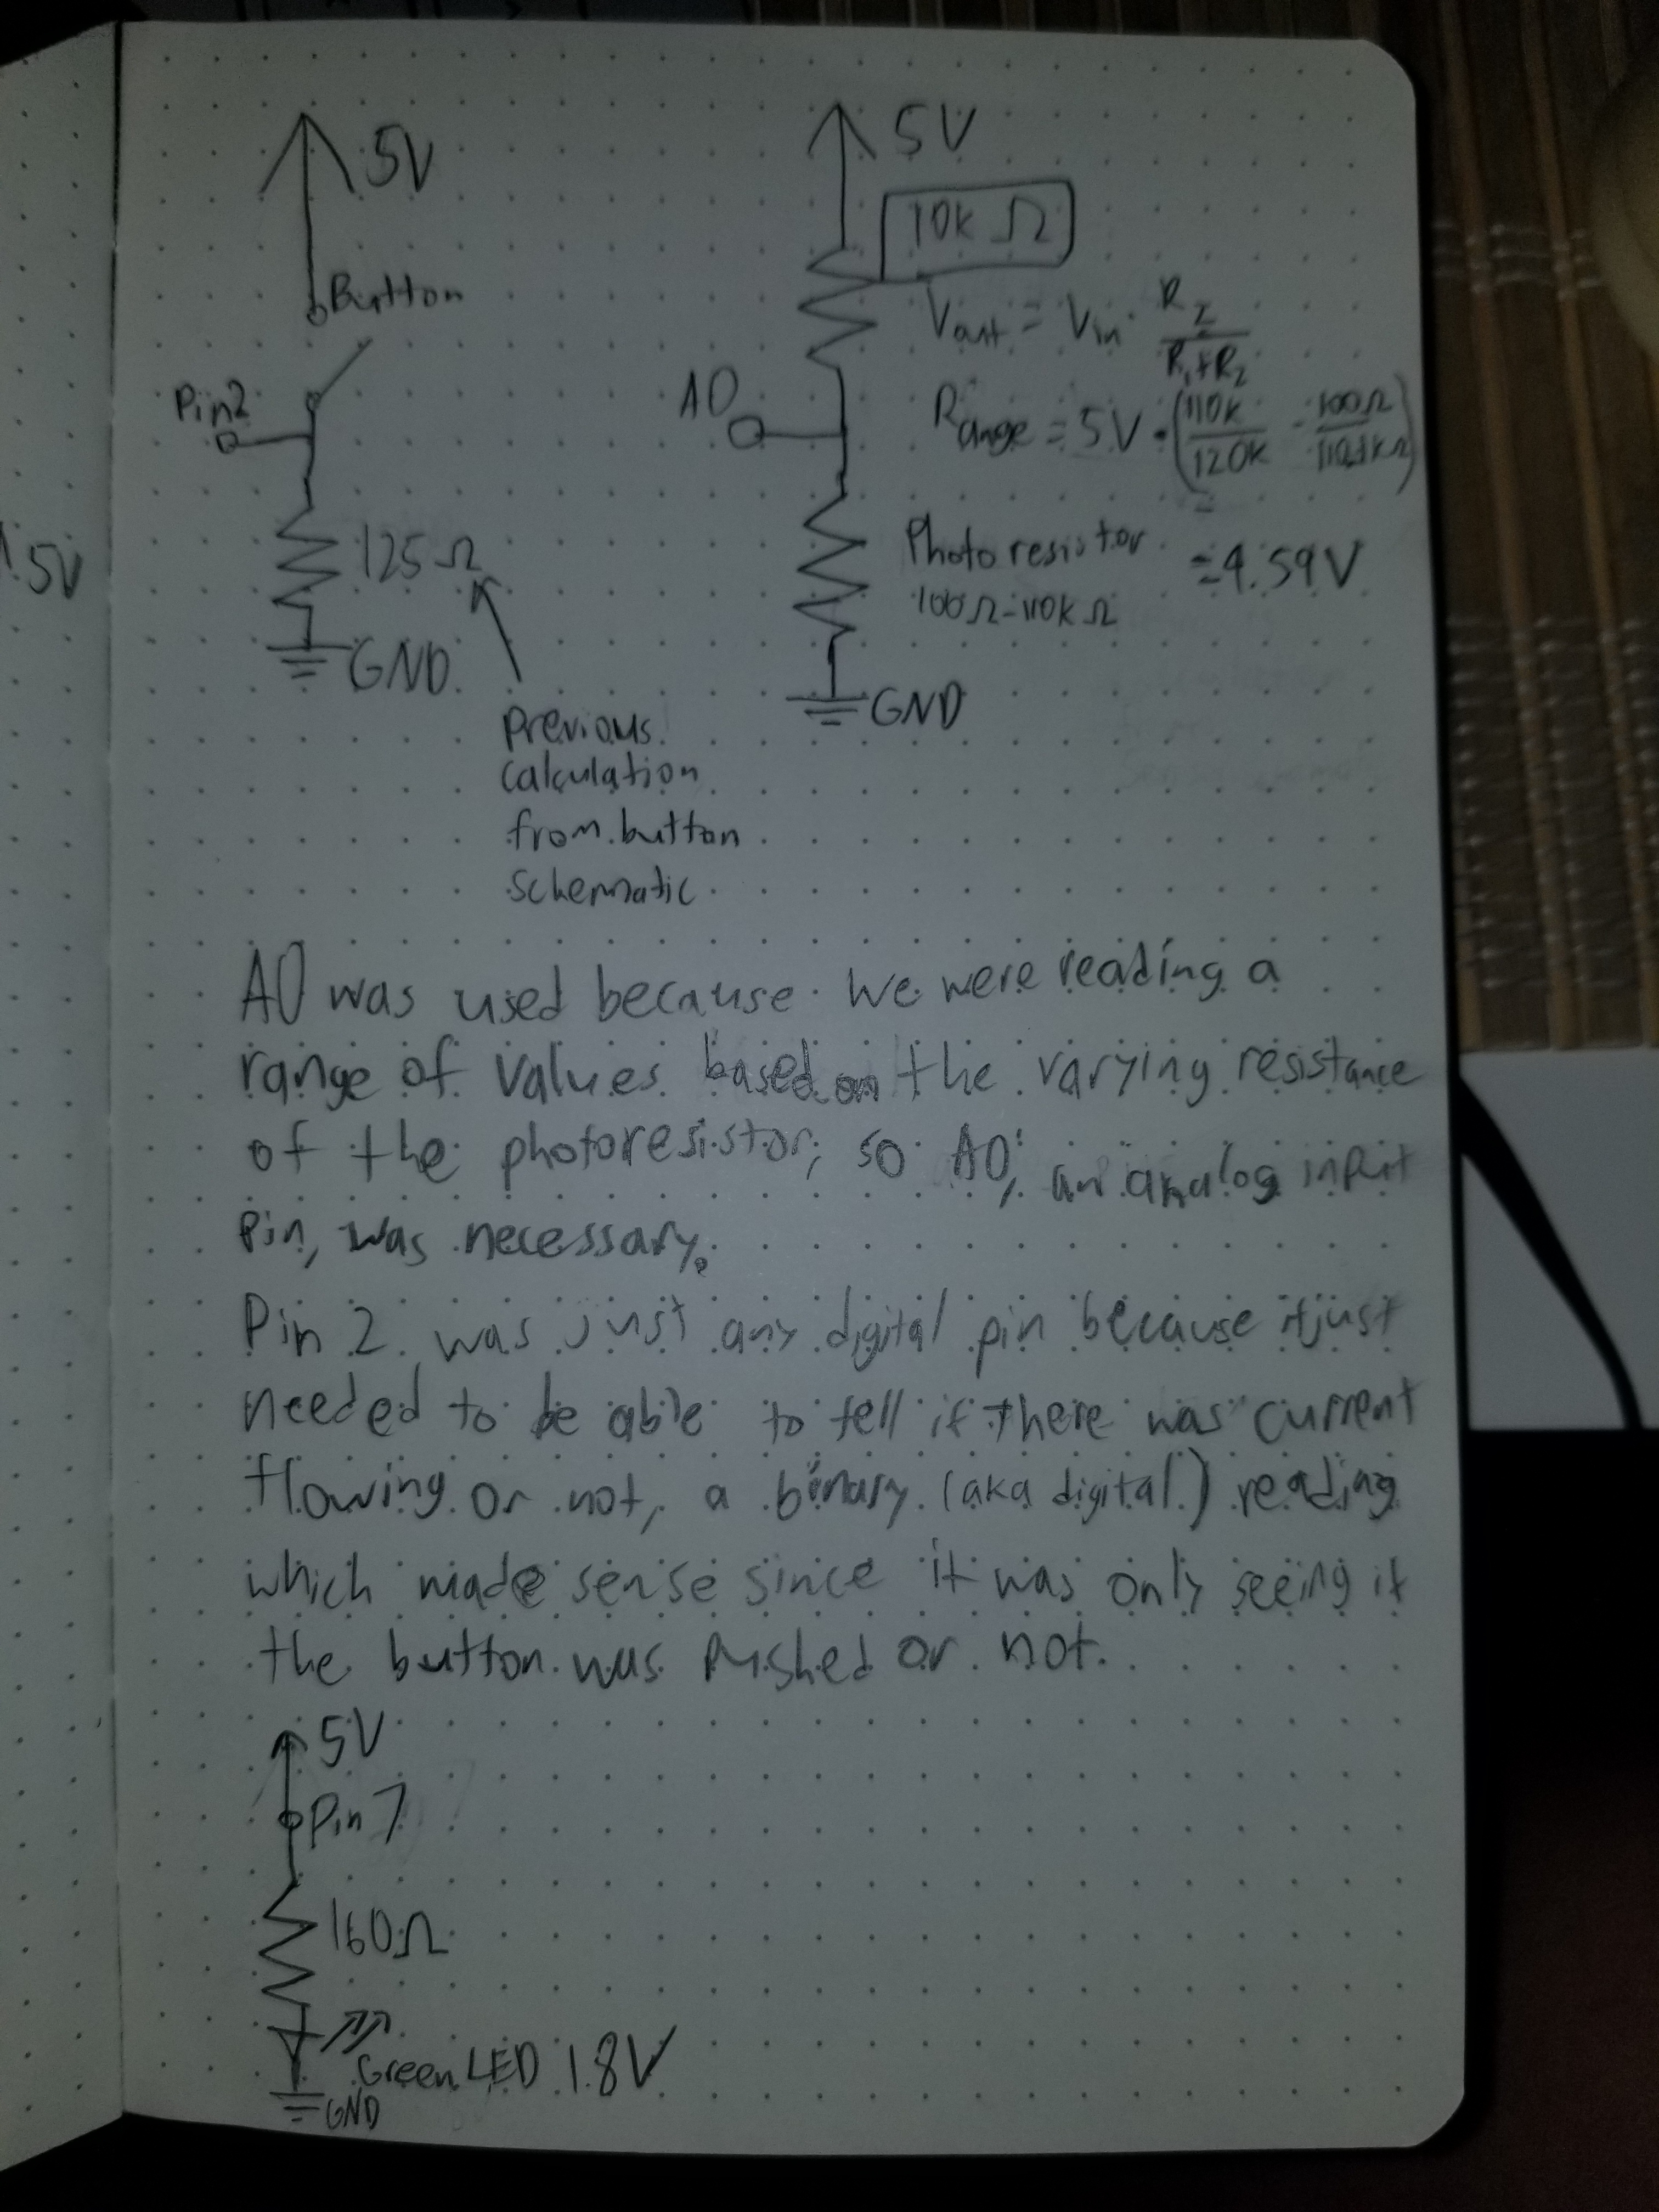 5V
Button
Pin2
125Ω
GND
Previous
calculation
from button
schematic
5V
10k Ω
Vout = Vin · R2 / R1+R2
A0
Range = 5V · (110k / 120k - 100Ω / 110.1kΩ)
=
Photoresistor
100Ω-110kΩ
=4.59V
GND
5V
A0 was used because we were reading a
range of values based on the varying resistance
of the photoresistor, so A0, an analog input
pin, was necessary.
Pin 2 was just any digital pin because it just
needed to be able to tell if there was current
flowing or not, a binary (aka digital) reading
which made sense since it was only seeing if
the button was pushed or not.
5V
Pin 7
160Ω
Green LED 1.8V
GND